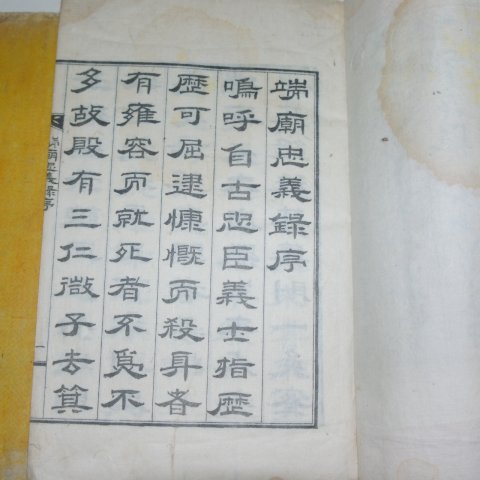 端廟忠義錄序
嗚呼自古忠臣義士指歷
歷可屈逮慷慨而殺身者
有雍容而就死者不爲不
多故殷有三仁微子去箕
端廟忠義錄序
一